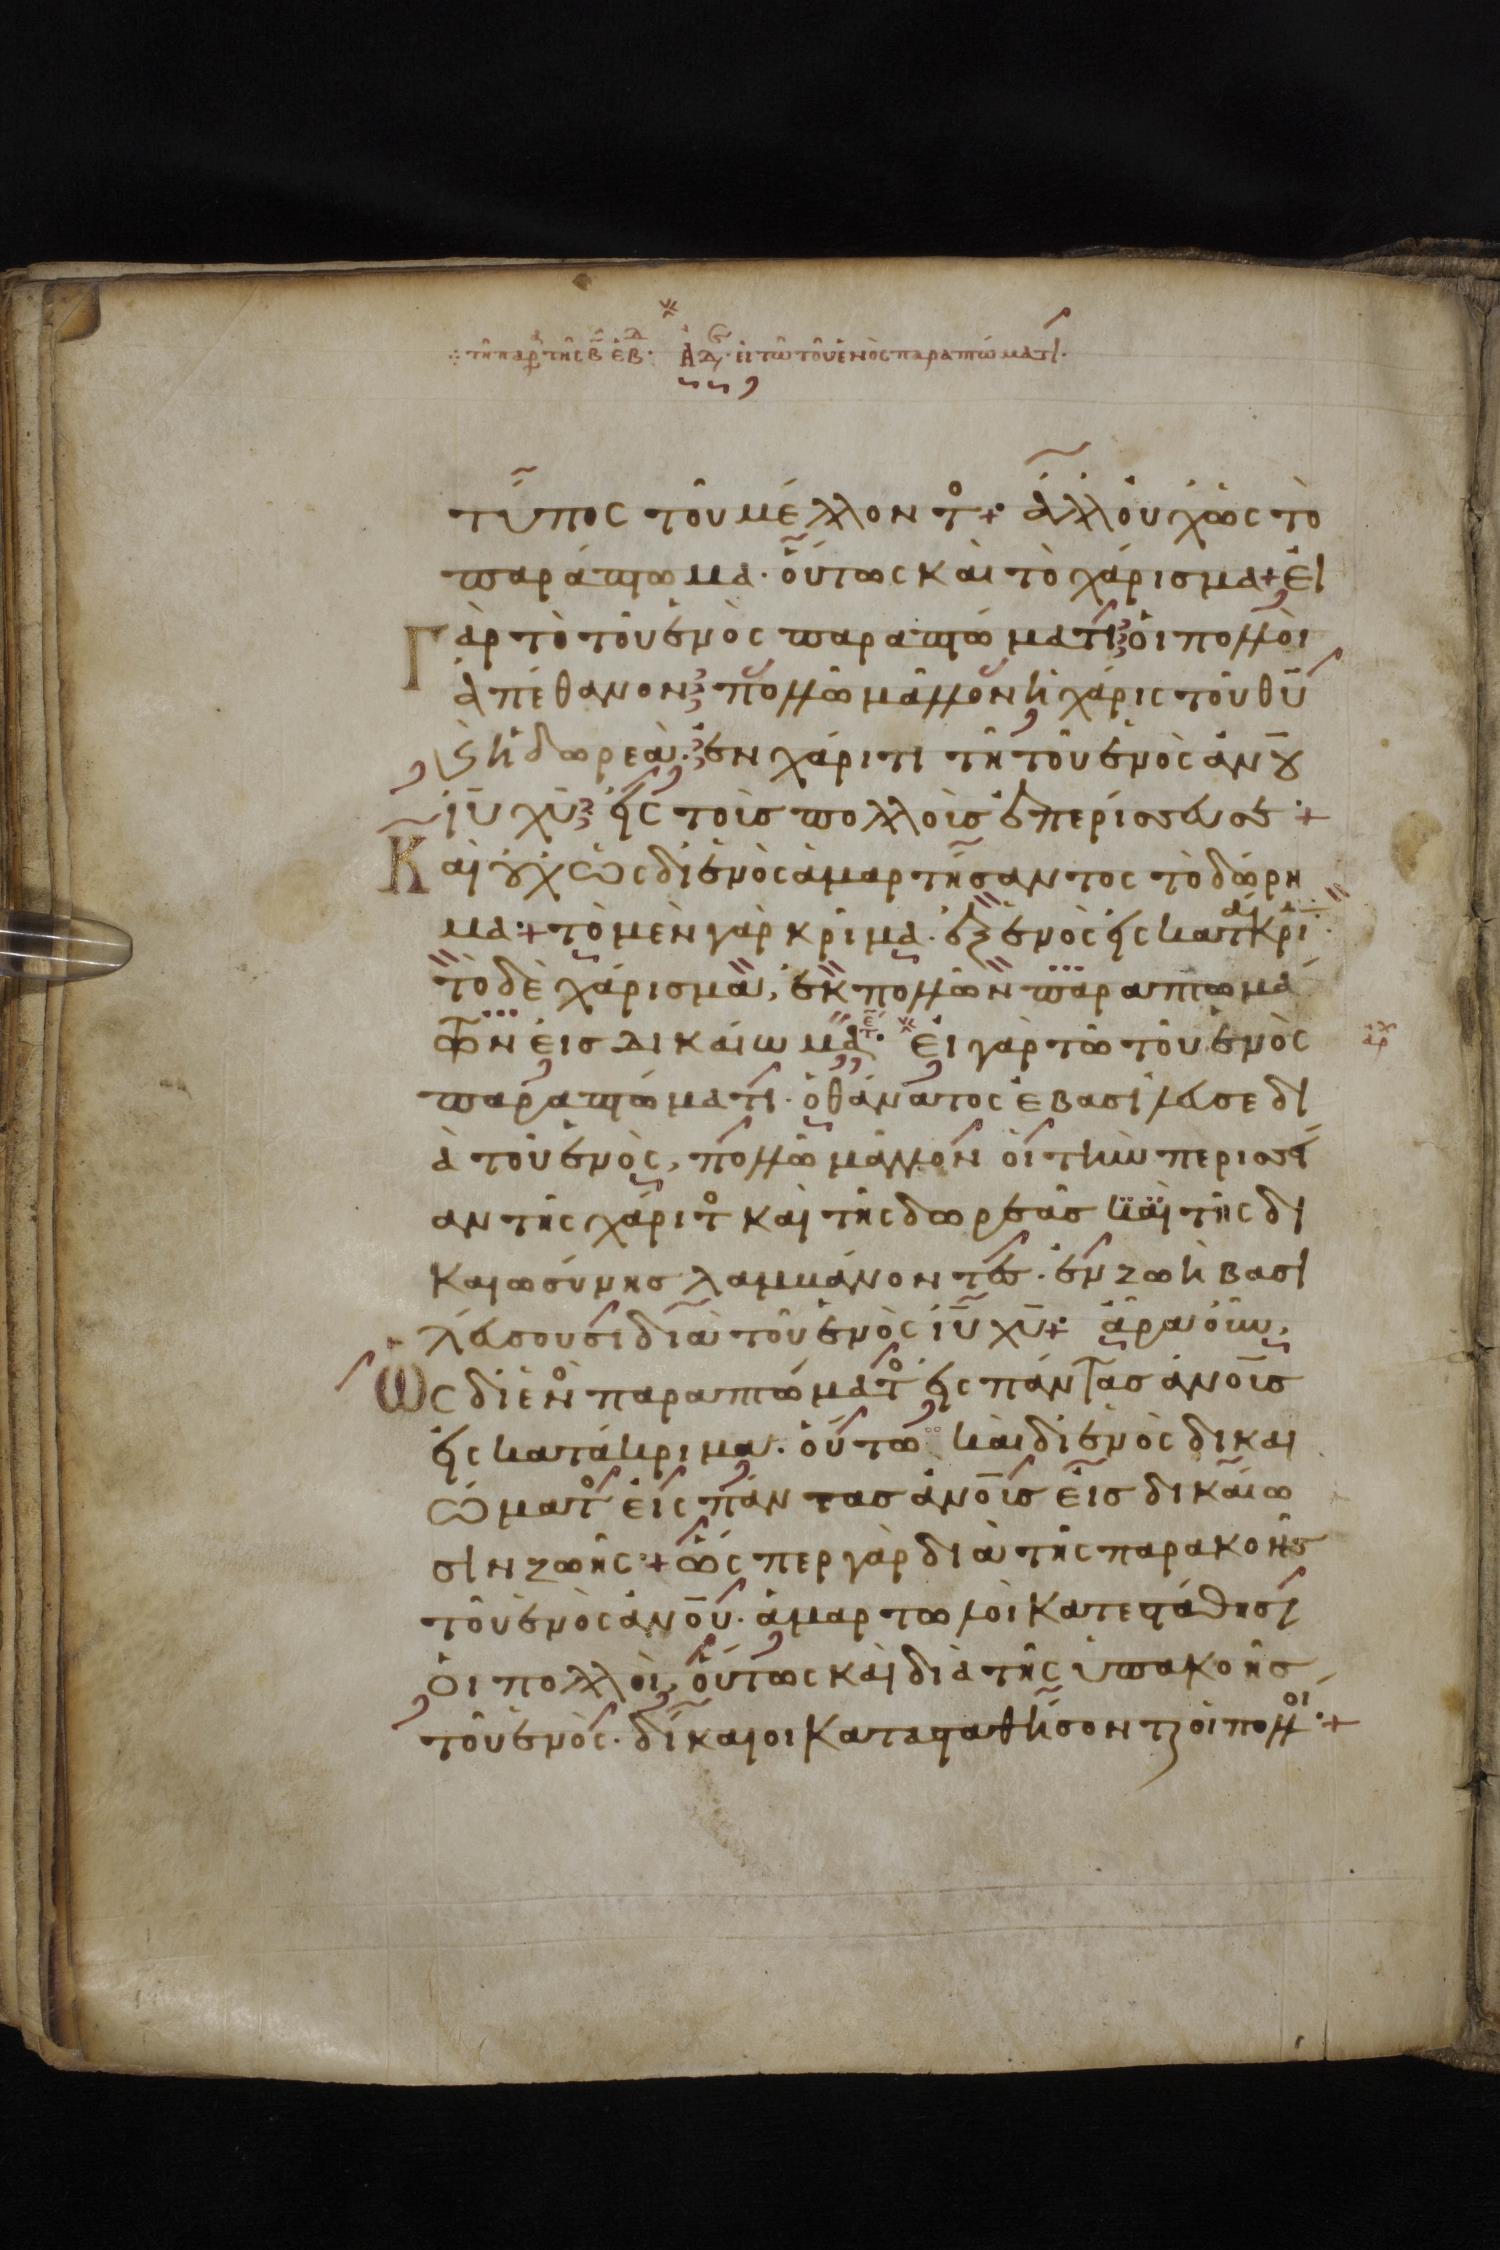 τῆ παρ τῆς β̄ ἑβδ· ἀδ· εἰ τῶ τοῦ ἑνὸς παραπτώματι·
τύπος τοῦ μέλλοντο+ ἀλλ οὐχ ὡς τὸ
παράπτωμα· οὕτως καὶ τὸ χάρισμα+ εἰ
γὰρ τὸ τοῦ ἑνὸς παραπτώματι οἱ πολλοὶ
ἀπέθανον πολλῶ μᾶλλον ἡ χάρις τοῦ θῡ
ϗ ἡ δωρεὰ· ἐν χάριτι τῆ τοῦ ἑνὸς ἀν̄ου
ἰῡ χῡ εἰς τοὺς πολλοὺς ἐπερίσσευσε+
Καὶ οὐχ ὡς δι ἑνὸς ἁμαρτήσαντος τὸ δώρη
μα·+ τὸ μὲν γὰρ κρῖμα· ἐξ ἑνὸς εἰς κατακρι
τὸ δὲ χάρισμα, ἐκ πολλῶν παραπτωμά
των εἰς δικαίωμα· εἰ γὰρ τῶ τοῦ ἑνὸς
ἀρχ
παραπτώματι· ὁ θάνατος ἐβασίλευσε δι
ὰ τοῦ ἑνὸς, πολλῶ μᾶλλον οἱ τὴν περισσεί
αν τῆς χάριτο καὶ τῆς δωρεᾶς καὶ τῆς δι
καιωσύνης λαμβάνοντες· ἐν ζωῆ βασι
λεύσουσι διὰ τοῦ ἑνὸς ἰῡ χῡ+ ἄρα οὖν,
Ὡς δι ἑνο παραπτώματο εἰς πάντας ἀν̄ους
εἰς κατάκριμα· οὕτω καὶ δι ἑνὸς δικαι
ώματο εἰς πάντας ἀν̄ους εἰς δικαίω
σιν ζωῆς·+ ὥς περ γὰρ διὰ τῆς παρακοῆς
τοῦ ἑνὸς ἀν̄ου· ἁμαρτωλοὶ κατεστάθησ
οἱ πολλοὶ, οὕτως καὶ διὰ τῆς ὑπακοῆς
τοῦ ἑνὸς· δίκαιοι κατασταθήσονται οἱ πολλοί·+